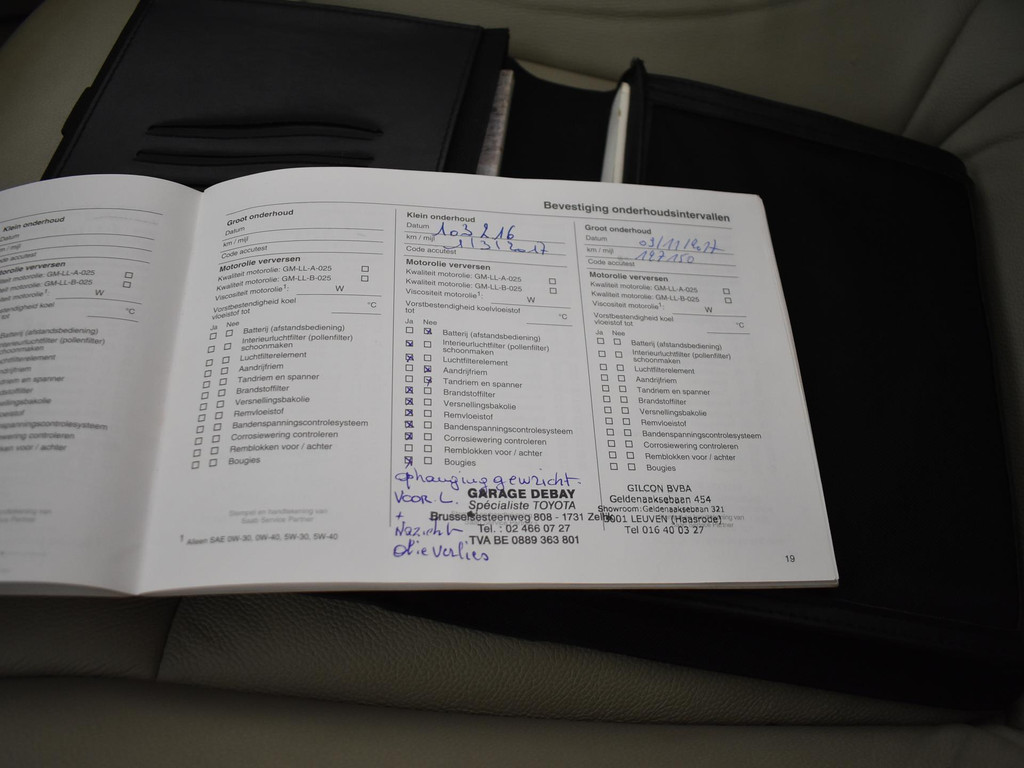 Klein onderhoud
Datum
km / mijl
Code accutest
Motorolie verversen
GM-LL-A-025
GM-LL-B-025
W
°C
(afstandsbediening)
(pollenfilter)
Aandrijfriem
en spanner
controleren
voor / achter
Groot onderhoud
Datum
km / mijl
Code accutest
Motorolie verversen
Kwaliteit motorolie: GM-LL-A-025
Kwaliteit motorolie: GM-LL-B-025
Viscositeit motorolie¹: W
Vorstbestendigheid koel
vloeistof tot °C
Ja Nee
Batterij (afstandsbediening)
Interieurluchtfilter (pollenfilter)
schoonmaken
Luchtfilterelement
Aandrijfriem
Tandriem en spanner
Brandstoffilter
Versnellingsbakolie
Remvloeistof
Bandenspanningscontrolesysteem
Corrosiewering controleren
Remblokken voor / achter
Bougies
Stempel en handtekening van
Saab Service Partner
¹ Alleen SAE 0W-30, 0W-40, 5W-30, 5W-40
Bevestiging onderhoudsintervallen
Klein onderhoud
Datum 103216
km / mijl 1/3/2017
Code accutest
Motorolie verversen
Kwaliteit motorolie: GM-LL-A-025
Kwaliteit motorolie: GM-LL-B-025
Viscositeit motorolie¹: W
Vorstbestendigheid koelvloeistof
tot °C
Ja Nee
Batterij (afstandsbediening)
Interieurluchtfilter (pollenfilter)
schoonmaken
Luchtfilterelement
Aandrijfriem
Tandriem en spanner
Brandstoffilter
Versnellingsbakolie
Remvloeistof
Bandenspanningscontrolesysteem
Corrosiewering controleren
Remblokken voor / achter
Bougies
ophanging gewricht.
VOOR L.
+
Nazicht
olie verlies
GARAGE DEBAY
Spécialiste TOYOTA
Brusselsesteenweg 808 - 1731 Zellik
Tel. : 02 466 07 27
TVA BE 0889 363 801
Groot onderhoud
Datum 03/11/2017
km / mijl 127150
Code accutest
Motorolie verversen
Kwaliteit motorolie: GM-LL-A-025
Kwaliteit motorolie: GM-LL-B-025
Viscositeit motorolie¹: W
Vorstbestendigheid koel
vloeistof tot °C
Ja Nee
Batterij (afstandsbediening)
Interieurluchtfilter (pollenfilter)
schoonmaken
Luchtfilterelement
Aandrijfriem
Tandriem en spanner
Brandstoffilter
Versnellingsbakolie
Remvloeistof
Bandenspanningscontrolesysteem
Corrosiewering controleren
Remblokken voor / achter
Bougies
GILCON BVBA
Geldenaaksebaan 454
Showroom: Geldenaaksebaan 321
3001 LEUVEN (Haasrode)
Tel 016 40 03 27
19